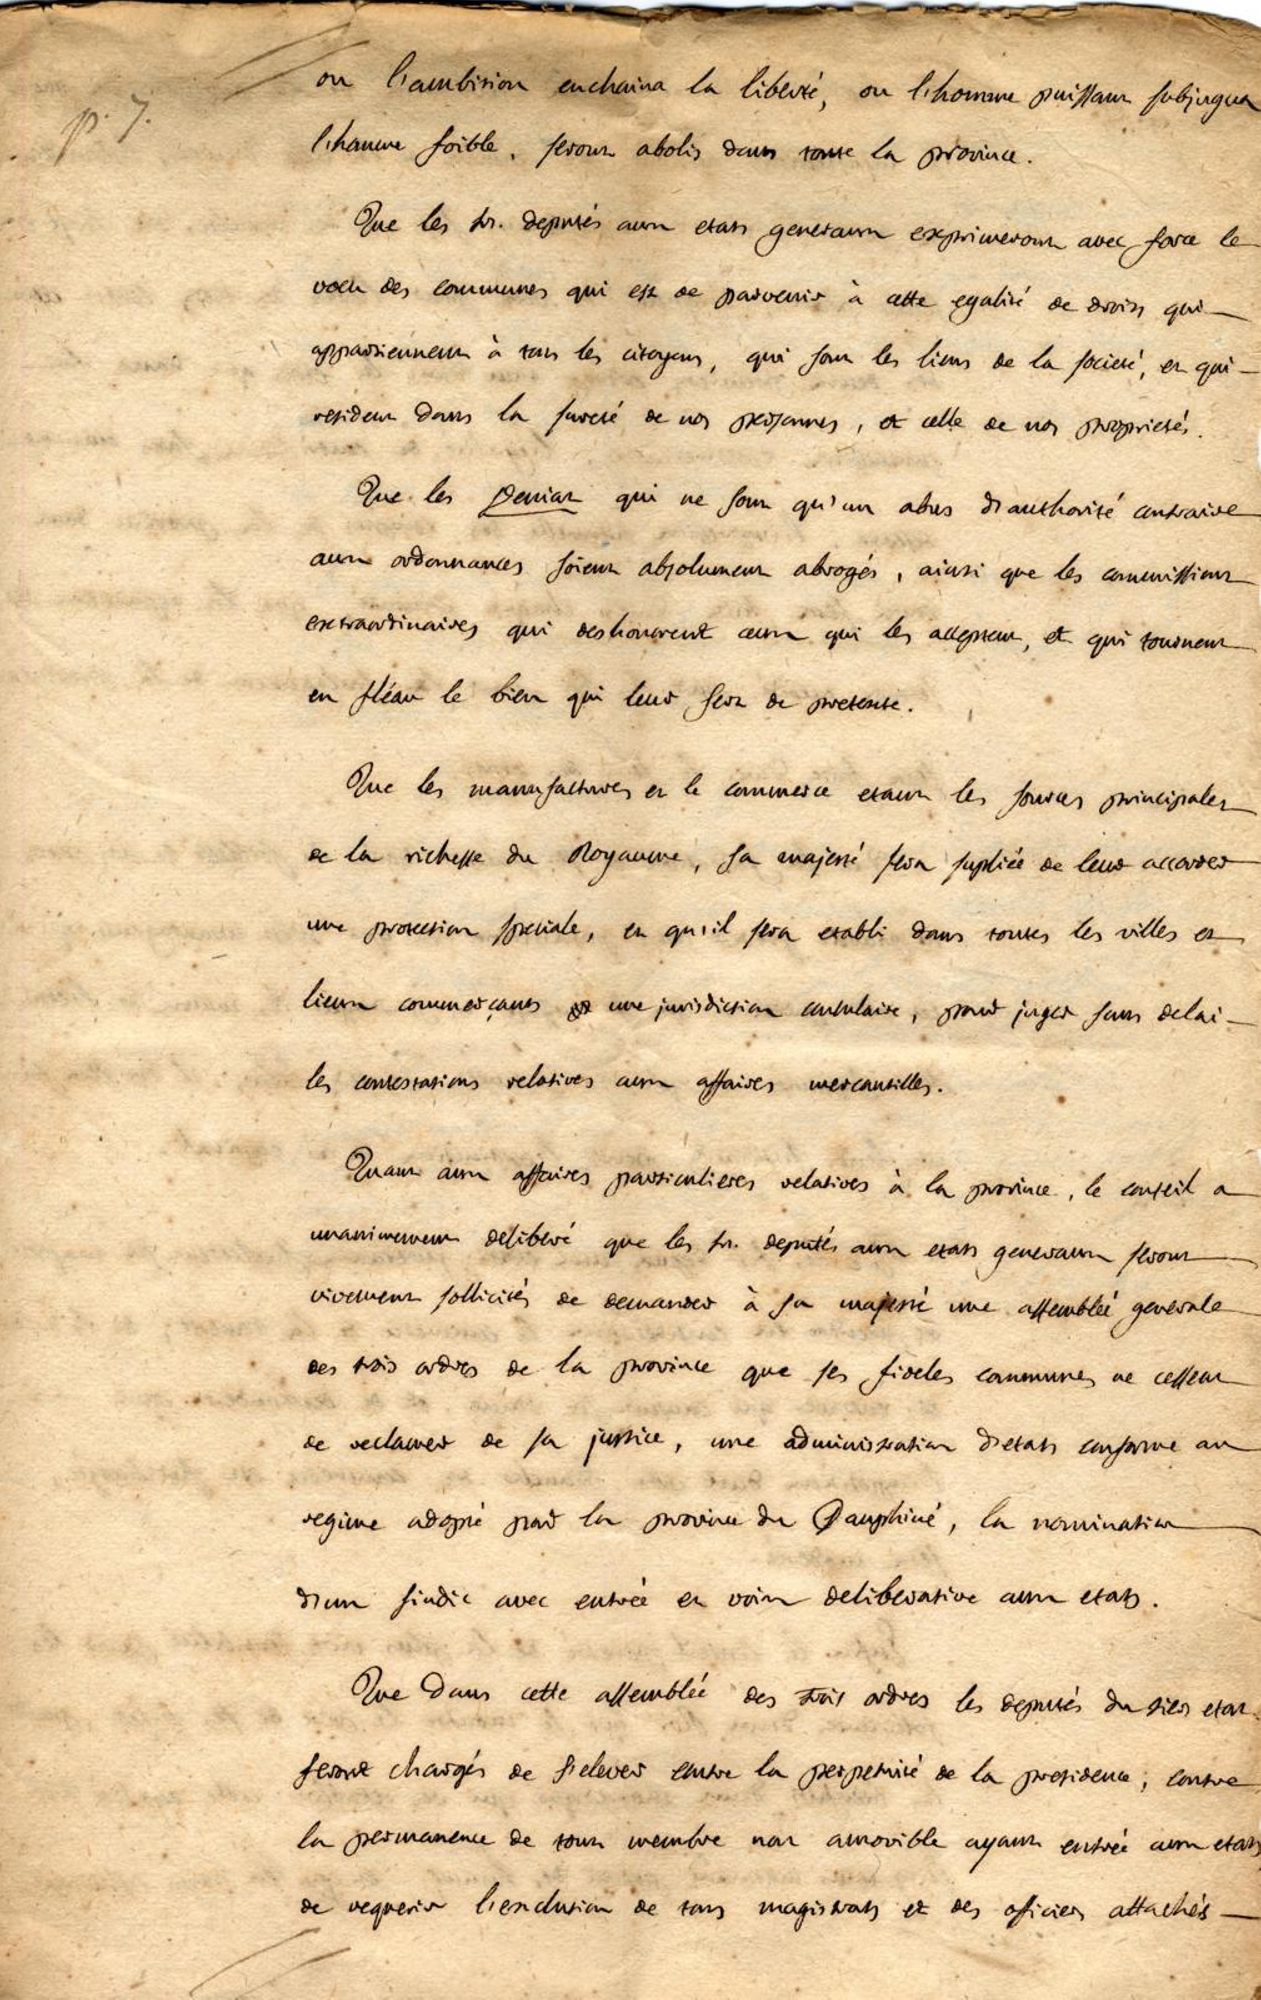 p. 7.
ou l'ambition enchaina la liberté, ou l'homme puissant subjugua
l'homme foible, seront abolis dans toute la province.
Que les sr. deputés aux etats generaux exprimeront avec force le
voeu des communes qui est de parvenir à cette egalité de droits qui
appartiennent à tous les citoyens, qui sont les liens de la societé, et qui
resident dans la sureté de nos personnes, et celle de nos proprietés.
Que les Deniat qui ne sont qu'un abus d'authorité contraire
aux ordonnances soient absolument abrogés, ainsi que les commissions
extraordinaires qui deshonorent ceux qui les acceptent, et qui tournent
en fléau le bien qui leur sert de pretexte.
Que les manufactures et le commerce etant les sources principales
de la richesse du Royaume, sa majesté sera supliée de leur accorder
une protection speciale, et qu'il sera etabli dans toutes les villes et
lieux commerçants une jurisdiction consulaire, pour juger sans delai
les contestations relatives aux affaires mercantilles.
Quant aux affaires particulieres relatives à la province, le conseil a
unanimement deliberé que les sr. deputés aux etats generaux seront
vivement sollicités de demander à sa majesté une assemblée generale
des trois ordres de la province que ses fideles communes ne cessent
de reclamer de sa justice, une administration d'etats conforme au
regime adopté par la province du Dauphiné, la nomination
d'un sindic avec entrée et voix deliberative aux etats.
Que dans cette assemblée des trois ordres les deputés du tiers etat
seront chargés de s'elever contre la perpetuité de la presidence, contre
la permanence de tout membre non amovible ayant entrée aux etats
de requerir l'exclusion de tous magistrats et des officiers attachés